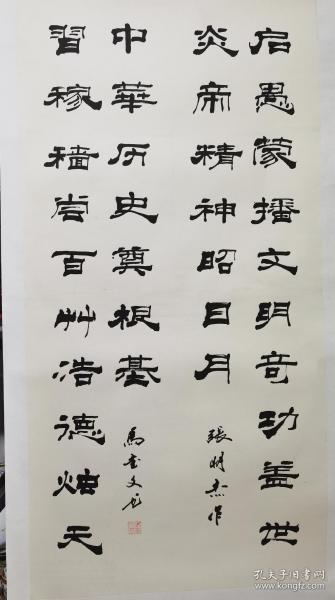 启愚蒙播文明奇功盖世
炎帝精神昭日月
張明杰作
習稼穑尝百艸浩德烛天
中華历史奠根基
馬文书
孔夫子旧书网